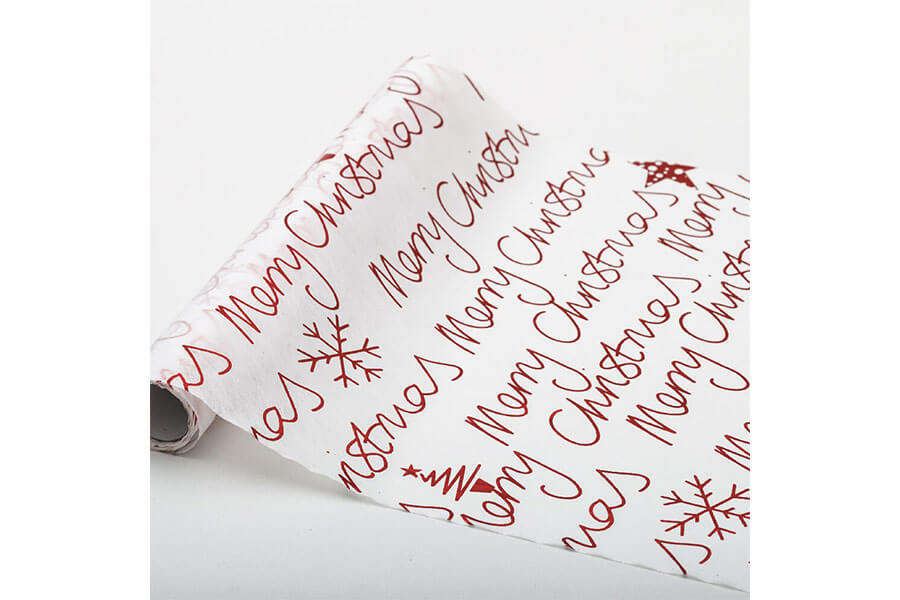 Merry Christmas
Merry Christm
Merry Christma
Merry Christmas
Merry Christmas
Merry
Christmas
Merry Christ
as
as
istmas
Merry
mas
M
s